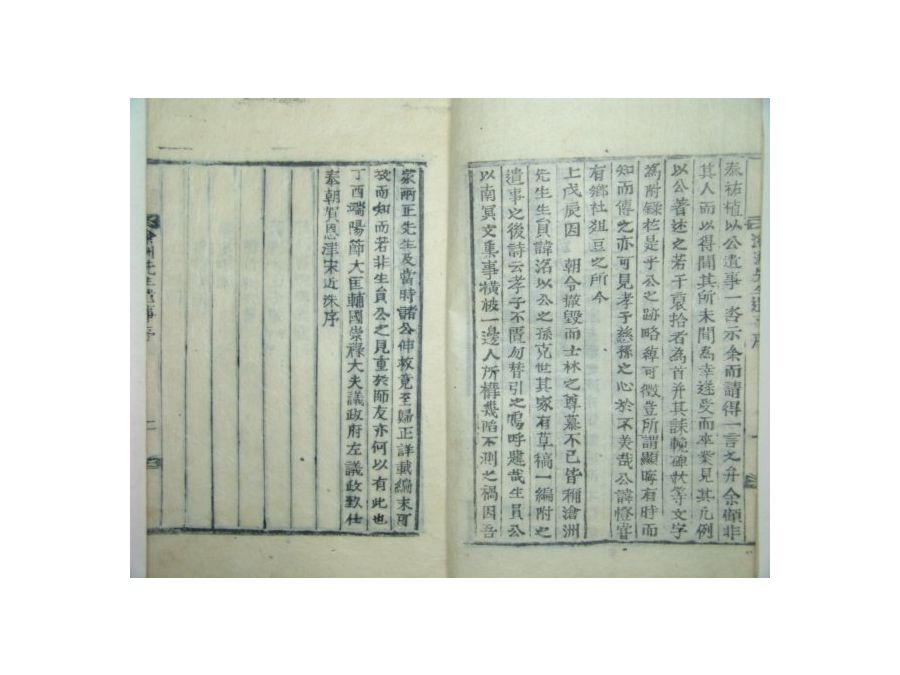 泰祐植以公遺事一沓示余而請得一言之弁余顧非
其人而以得聞其所未聞為幸遂受而卒業見其凡例
以公著述之若干裒拾者為首并其誄輓碑狀等文字
為附錄於是乎公之跡略綽可徵豈所謂顯晦有時而
知而傳之亦可見孝子慈孫之心於不美哉公諱
有鄉社俎豆之所今
上戊辰因 朝令撤毀而士林之尊慕不已皆稱滄洲
先生生員諱洺以公之孫克世其家有草稿一編附之
遺事之後詩云孝子不匱勿替引之嗚呼韙哉生員公
以南冥文集事橫被一邊人所構幾陷不測之禍因吾
家兩正先生及當時諸公伸救竟至歸正詳載編末可
攷而知而若非生員公之見重於師友亦何以有此也
丁酉端陽節大匡輔國崇祿大夫議政府左議政致仕
奉朝賀恩津宋近洙序
滄洲先生遺事序 二